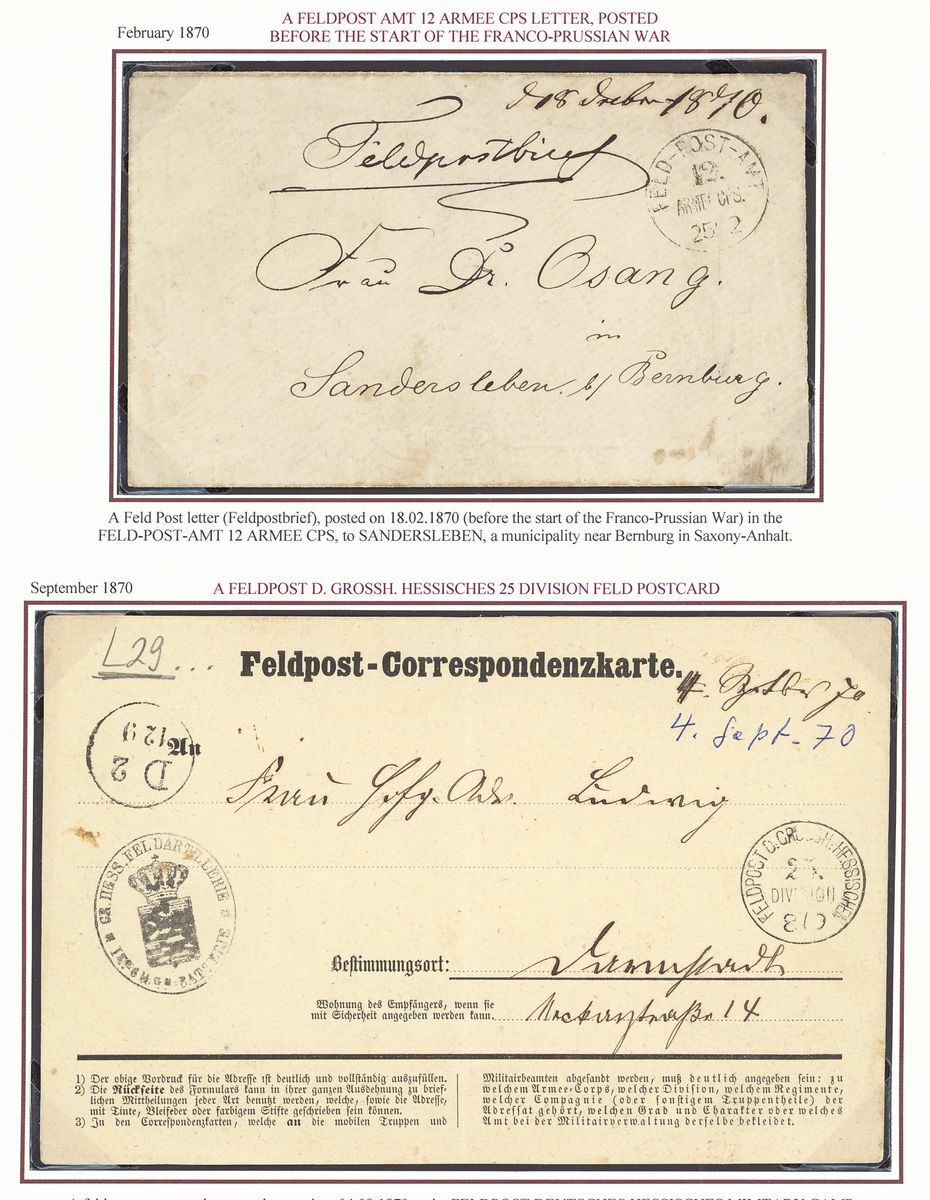 February 1870
A FELDPOST AMT 12 ARMEE CPS LETTER, POSTED
BEFORE THE START OF THE FRANCO-PRUSSIAN WAR
1870.
Feldpostbrief
FELD-POST-AMT
12.
ARMEE CPS.
25 2
Frau Dr. Osang.
in
Sandersleben b/ Bernburg.
A Feld Post letter (Feldpostbrief), posted on 18.02.1870 (before the start of the Franco-Prussian War) in the
FELD-POST-AMT 12 ARMEE CPS, to SANDERSLEBEN, a municipality near Bernburg in Saxony-Anhalt.
September 1870
A FELDPOST D. GROSSH. HESSISCHES 25 DIVISION FELD POSTCARD
L29...
Feldpost-Correspondenzkarte.
4. Septbr 70
4. Sept. 70
D 2
12 9
An
Frau Hofg. Adv. Ludwig
GR. HESS. FELDARTILLERIE
FELDPOST D. GROSSH. HESSISCHEN
25.
DIVISION
8/9
Bestimmungsort: Darmstadt
Wohnung des Empfängers, wenn sie
mit Sicherheit angegeben werden kann. Neckarstraße 14
1) Der obige Vordruck für die Adresse ist deutlich und vollständig auszufüllen.
2) Die Rückseite des Formulars kann in ihrer ganzen Ausdehnung zu brief-
lichen Mittheilungen jeder Art benutzt werden, welche, sowie die Adresse,
mit Tinte, Bleifeder oder farbigem Stifte geschrieben sein können.
3) In den Correspondenzkarten, welche an die mobilen Truppen und
Militärbeamten abgesandt werden, muß deutlich angegeben sein: zu
welchem Armee-Corps, welcher Division, welchem Regimente,
welcher Compagnie (oder sonstigem Truppentheile) der
Adressat gehört, welchen Grad und Charakter oder welches
Amt bei der Militärverwaltung derselbe bekleidet.